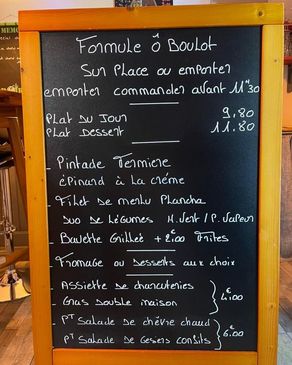 Formule Ô Boulot
Sur Place ou emporter
emporter commander avant 11"30
Plat du Jour 9,80
Plat Dessert 11.80
- Pintade Fermiere
épinard à la crème
- Filet de merlu Plancha
Duo de légumes H. Vert / P. Vapeur
- Bavette Grillée + 2€00 Frites
- Fromage ou Desserts aux choix
- Assiette de charcuteries
- Gras Double maison } 4€00
- Pt Salade de chèvre chaud
- Pt Salade de Gesiers confits } 6€00